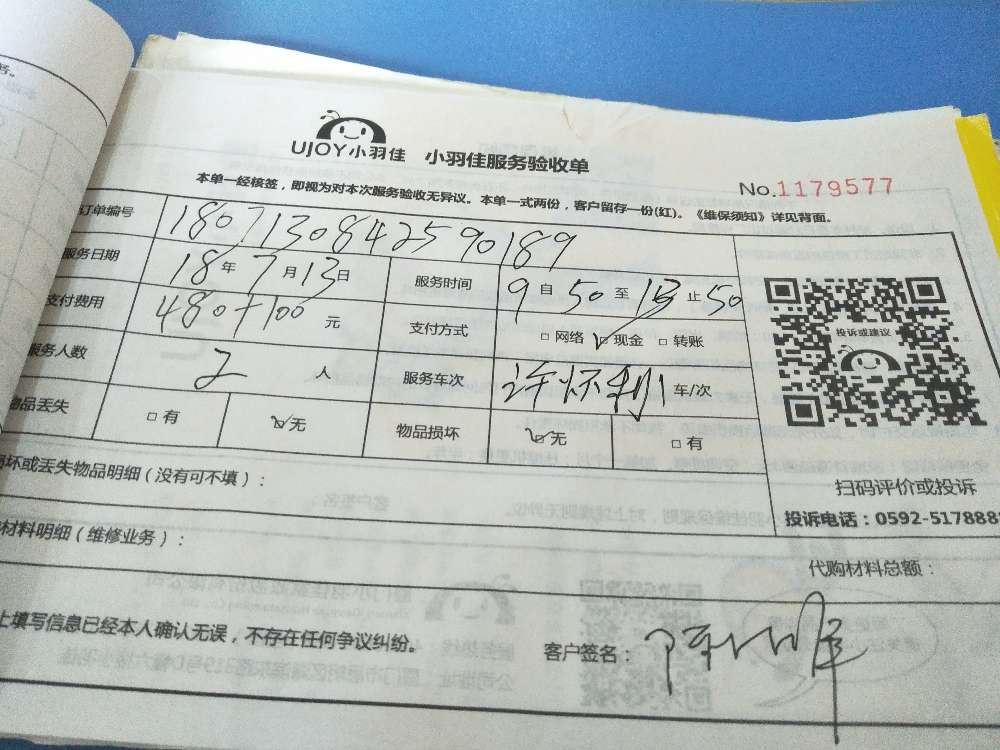 号。
UJOY小羽佳 小羽佳服务验收单
No.1179577
本单一经核签，即视为对本次服务验收无异议。本单一式两份，客户留存一份(红)。《维保须知》详见背面。
订单编号 1807130842590189
服务日期 18年7月13日 服务时间 9自50至13止50
支付费用 480+100元 支付方式 □网络 ☑现金 □转账
服务人数 2人 服务车次 许怀利 车/次
物品丢失 □有 ☑无 物品损坏 ☑无 □有
投诉或建议
扫码评价或投诉
投诉电话：0592-517888
损坏或丢失物品明细(没有可不填)：
材料明细(维修业务)：
代购材料总额：
上填写信息已经本人确认无误，不存在任何争议纠纷。
客户签名：